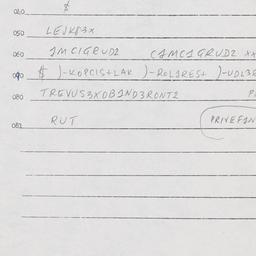 020 $
050 LEJKP3X
060 1MCIGRUD2 (1MC1GRUD2 XX
090 $ )-KOPCIS+LAK )-ROL1RES+ )-UDL3R
080 TREVUS3XOB1ND3RONT2 P
082
RUT PRIVEF1N